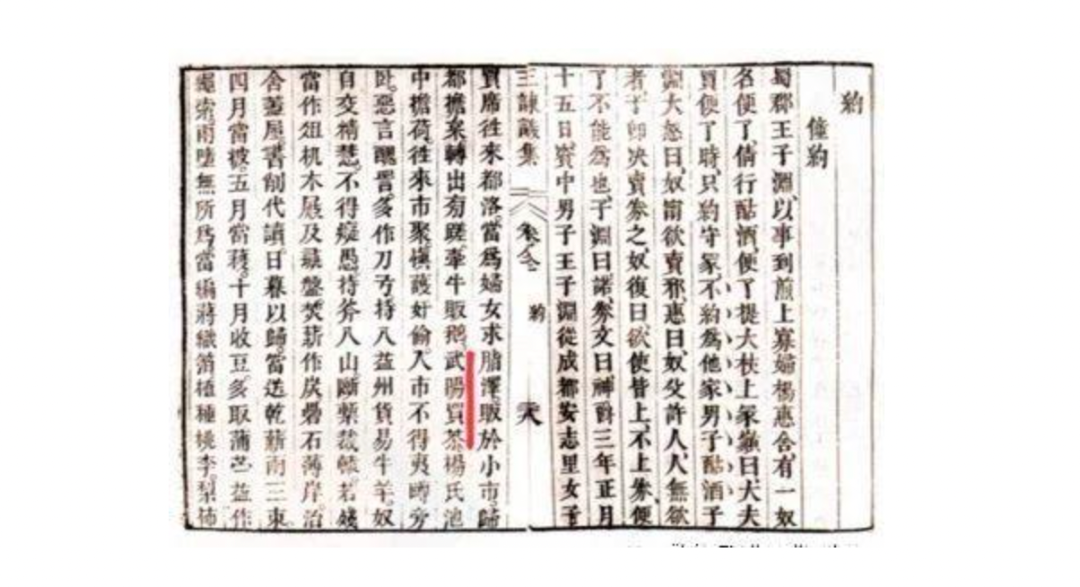 約
僮約
蜀郡王子淵、以事到煎上寡婦楊惠舍、有一奴
名便了、倩行酤酒、便了提大杖上冢巔曰、大夫
買便了時、只約守冢、不約為他家男子酤酒、子
淵大怒曰、奴甯欲賣邪、惠曰、奴父許人、人無欲
者、子卽決賣券之、奴復曰、欲使皆上、不上券、便
了不能為也、子淵曰、諾、券文曰、神爵三年正月
十五日、資中男子王子淵、從成都安志里女子
王諫議集 卷全 約 六
買席往來都洛。當爲婦女求脂澤。販於小市。歸
都擔枲。轉出旁蹉。牽牛販鵝。武陽買茶。楊氏池
中擔荷。往來市聚。愼護奸偷。入市不得夷蹲旁
臥。惡言醜詈。多作刀弓。持入益州。貨易牛羊。奴
自交精慧。不得癡愚。持斧入山。斷槧裁轅。若殘
當作俎机木屐及彘盤。焚薪作炭。礨石薄岸。治
舍蓋屋。書削代牘。日暮以歸。當送乾薪兩三束。
四月當披。五月當穫。十月收豆。多取蒲苎。益作
繩索。雨墮無所爲。當編蔣織箔。植種桃李。梨柿